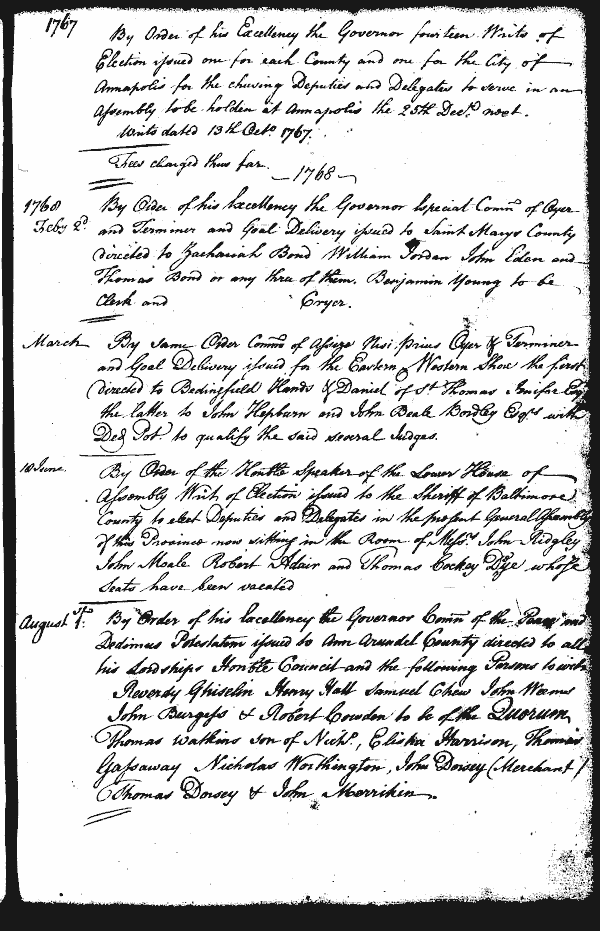 1767
By Order of his Excellency the Governor fourteen Writs of
Election issued one for each County and one for the City of
Annapolis for the chusing Deputies and Delegates to serve in an
Assembly to be holden at Annapolis the 25th Decr. next.
Writs dated 13th Octo. 1767.
Fees charged thus far.
1768
1768
Feby 2d.
By Order of his Excellency the Governor Especial Comn. of Oyer
and Terminer and Goal Delivery issued to Saint Marys County
directed to Zachariah Bond William Jordan John Eden and
Thomas Bond or any three of them. Benjamin Young to be
Clerk and Cryer.
March
By same Order Comns. of Assize Nisi Prius Oyer & Terminer
and Goal Delivery issued for the Eastern & Western Shore the first
directed to Bedingfield Hands & Daniel of St. Thomas Jenifer Esqrs
the latter to John Hepburn and John Beale Bordley Esqrs. with
Ded. Pot. to qualify the said several Judges.
18 June.
By Order of the Honble Speaker of the Lower House of
Assembly Writ of Election issued to the Sheriff of Baltimore
County to elect Deputies and Delegates in the present General Assembly
of this Province now sitting in the Room of Messrs. John Ridgley
John Moale Robert Adair and Thomas Cockey Dye whose
Seats have been vacated
August 1st.
By Order of his Excellency the Governor Comn. of the Peace and
Dedimus Potestatem issued to Ann Arundel County directed to all
his Lordships Honble Council and the following Persons to wit
Reverdy Ghiselin Henry Hall Samuel Chew John Weems
John Burgess & Robert Cowden to be of the Quorum
Thomas Watkins son of Nichs., Elisha Harrison, Thomas
Gassaway Nicholas Worthington, John Dorsey (Merchant)
Thomas Dorsey & John Merriken.